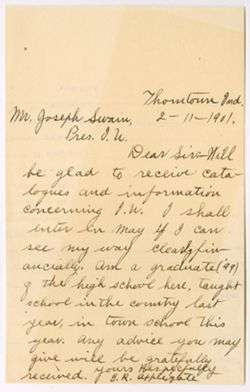 Thorntown Ind.
Mr. Joseph Swain, 2-11-1901.
Pres. I.U.
Dear Sir:- Will
be glad to receive cata-
logues and information
concerning I.U. I shall
enter in May if I can
see my way clearly fin-
ancially. Am a graduate ('99)
of the high school here, taught
school in the country last
year, in town school this
year. Any advice you may
give will be gratefully
received. Yours Respectfully
E.R. Applegate